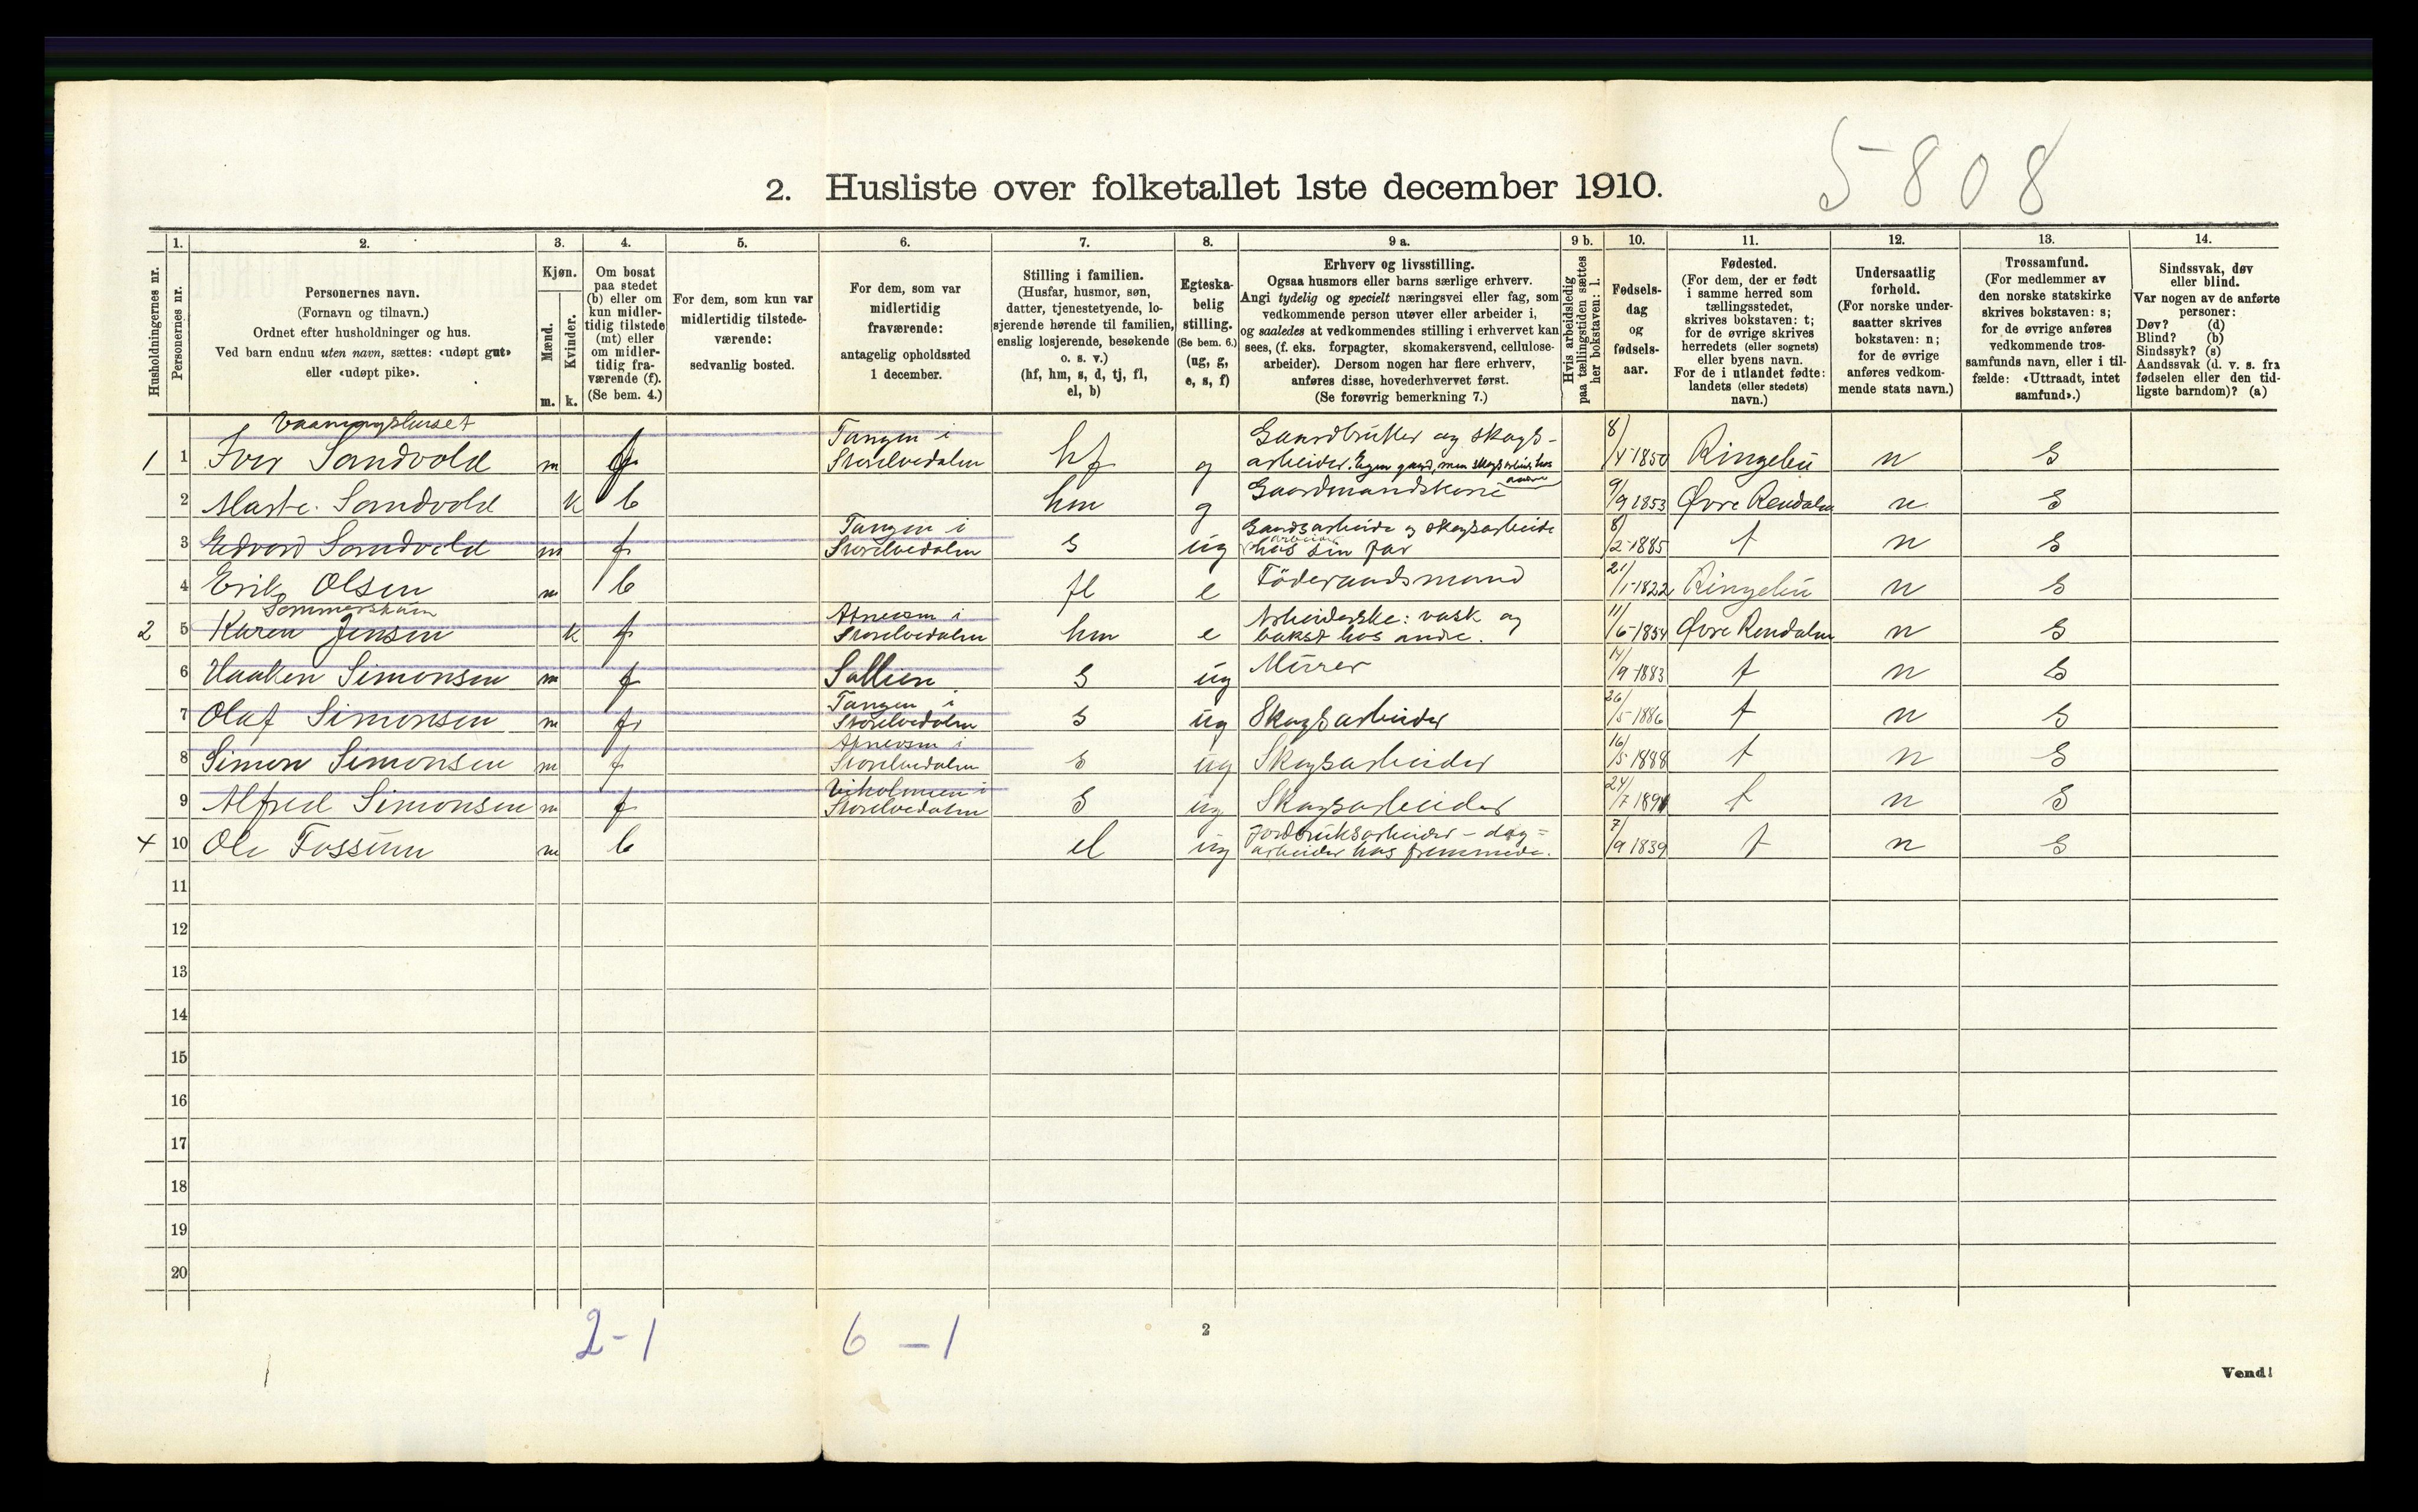 5808
2. Husliste over folketallet 1ste december 1910.
1. 2. 3. 4. 5. 6. 7. 8. 9 a. 9 b. 10. 11. 12. 13. 14.
Husholdningernes nr.
Personernes nr.
Personernes navn.
(Fornavn og tilnavn.)
Ordnet efter husholdninger og hus.
Ved barn endnu uten navn, sættes: «udøpt gut»
eller «udøpt pike».
Kjøn.
Mænd.
Kvinder.
m. k.
Om bosat
paa stedet
(b) eller om
kun midler-
tidig tilstede
(mt) eller
om midler-
tidig fra-
værende (f).
(Se bem. 4.)
For dem, som kun var
midlertidig tilstede-
værende:
sedvanlig bosted.
For dem, som var
midlertidig
fraværende:
antagelig opholdssted
1 december.
Stilling i familien.
(Husfar, husmor, søn,
datter, tjenestetyende, lo-
sjerende hørende til familien,
enslig losjerende, besøkende
o. s. v.)
(hf, hm, s, d, tj, fl,
el, b)
Egteska-
belig
stilling.
(Se bem. 6.)
(ug, g,
e, s, f)
Erhverv og livsstilling.
Ogsaa husmors eller barns særlige erhverv.
Angi tydelig og specielt næringsvei eller fag, som
vedkommende person utøver eller arbeider i,
og saaledes at vedkommendes stilling i erhvervet kan
sees, (f. eks. forpagter, skomakersvend, cellulose-
arbeider). Dersom nogen har flere erhverv,
anføres disse, hovederhvervet først.
(Se forøvrig bemerkning 7.)
Hvis arbeidsledig
paa tællingstiden sættes
her bokstaven: l.
Fødsels-
dag
og
fødsels-
aar.
Fødested.
(For dem, der er født
i samme herred som
tællingsstedet,
skrives bokstaven: t;
for de øvrige skrives
herredets (eller sognets)
eller byens navn.
For de i utlandet fødte:
landets (eller stedets)
navn.)
Undersaatlig
forhold.
(For norske under-
saatter skrives
bokstaven: n;
for de øvrige
anføres vedkom-
mende stats navn.)
Trossamfund.
(For medlemmer av
den norske statskirke
skrives bokstaven: s;
for de øvrige anføres
vedkommende tros-
samfunds navn, eller i til-
fælde: «Uttraadt, intet
samfund».)
Sindssvak, døv
eller blind.
Var nogen av de anførte
personer:
Døv? (d)
Blind? (b)
Sindssyk? (s)
Aandssvak (d. v. s. fra
fødselen eller den tid-
ligste barndom)? (a)
Vaaningshuset
1 1 Iver Sandvold m f Tangen i Storelvedalen hf g Gaardbruker og skogs-
arbeider. Egen gaard, men skogsarbeid hos andre 8/4-1850 Ringebu n S
2 Marte Sandvold k b hm g Gaardmandskone 9/9 1853 Øvre Rendalen n S
3 Edvard Sandvold m f Tangen i Storelvedalen S ug Gaardsarbeide og skogsarbeide
hos sin far 8/2-1885 t n S
4 Erik Olsen m b fl e Föderaadsmand 21/1-1822 Ringebu n S
2 5 Karen Jensen k f i Storelvedalen hm e Arbeiderske: vask og
bakst hos andre. 11/6-1854 Øvre Rendalen n S
6 Haaken Simonsen m f Sollien S ug Murer 14/9-1883 t n S
7 Olaf Simonsen m f Tangen i Storelvedalen S ug Skogsarbeider 26/5-1886 t n S
8 Simon Simonsen m f i Storelvedalen S ug Skogsarbeider 16/5-1888 t n S
9 Alfred Simonsen m f i Storelvedalen S ug Skogsarbeider 24/7 1891 t n S
10 Ole Fossum m b el ug Jordbruksarbeider - dag=
arbeider hos fremmede. 7/9 1839 t n S
11
12
13
14
15
16
17
18
19
20
2-1 6-1
2
Vend!